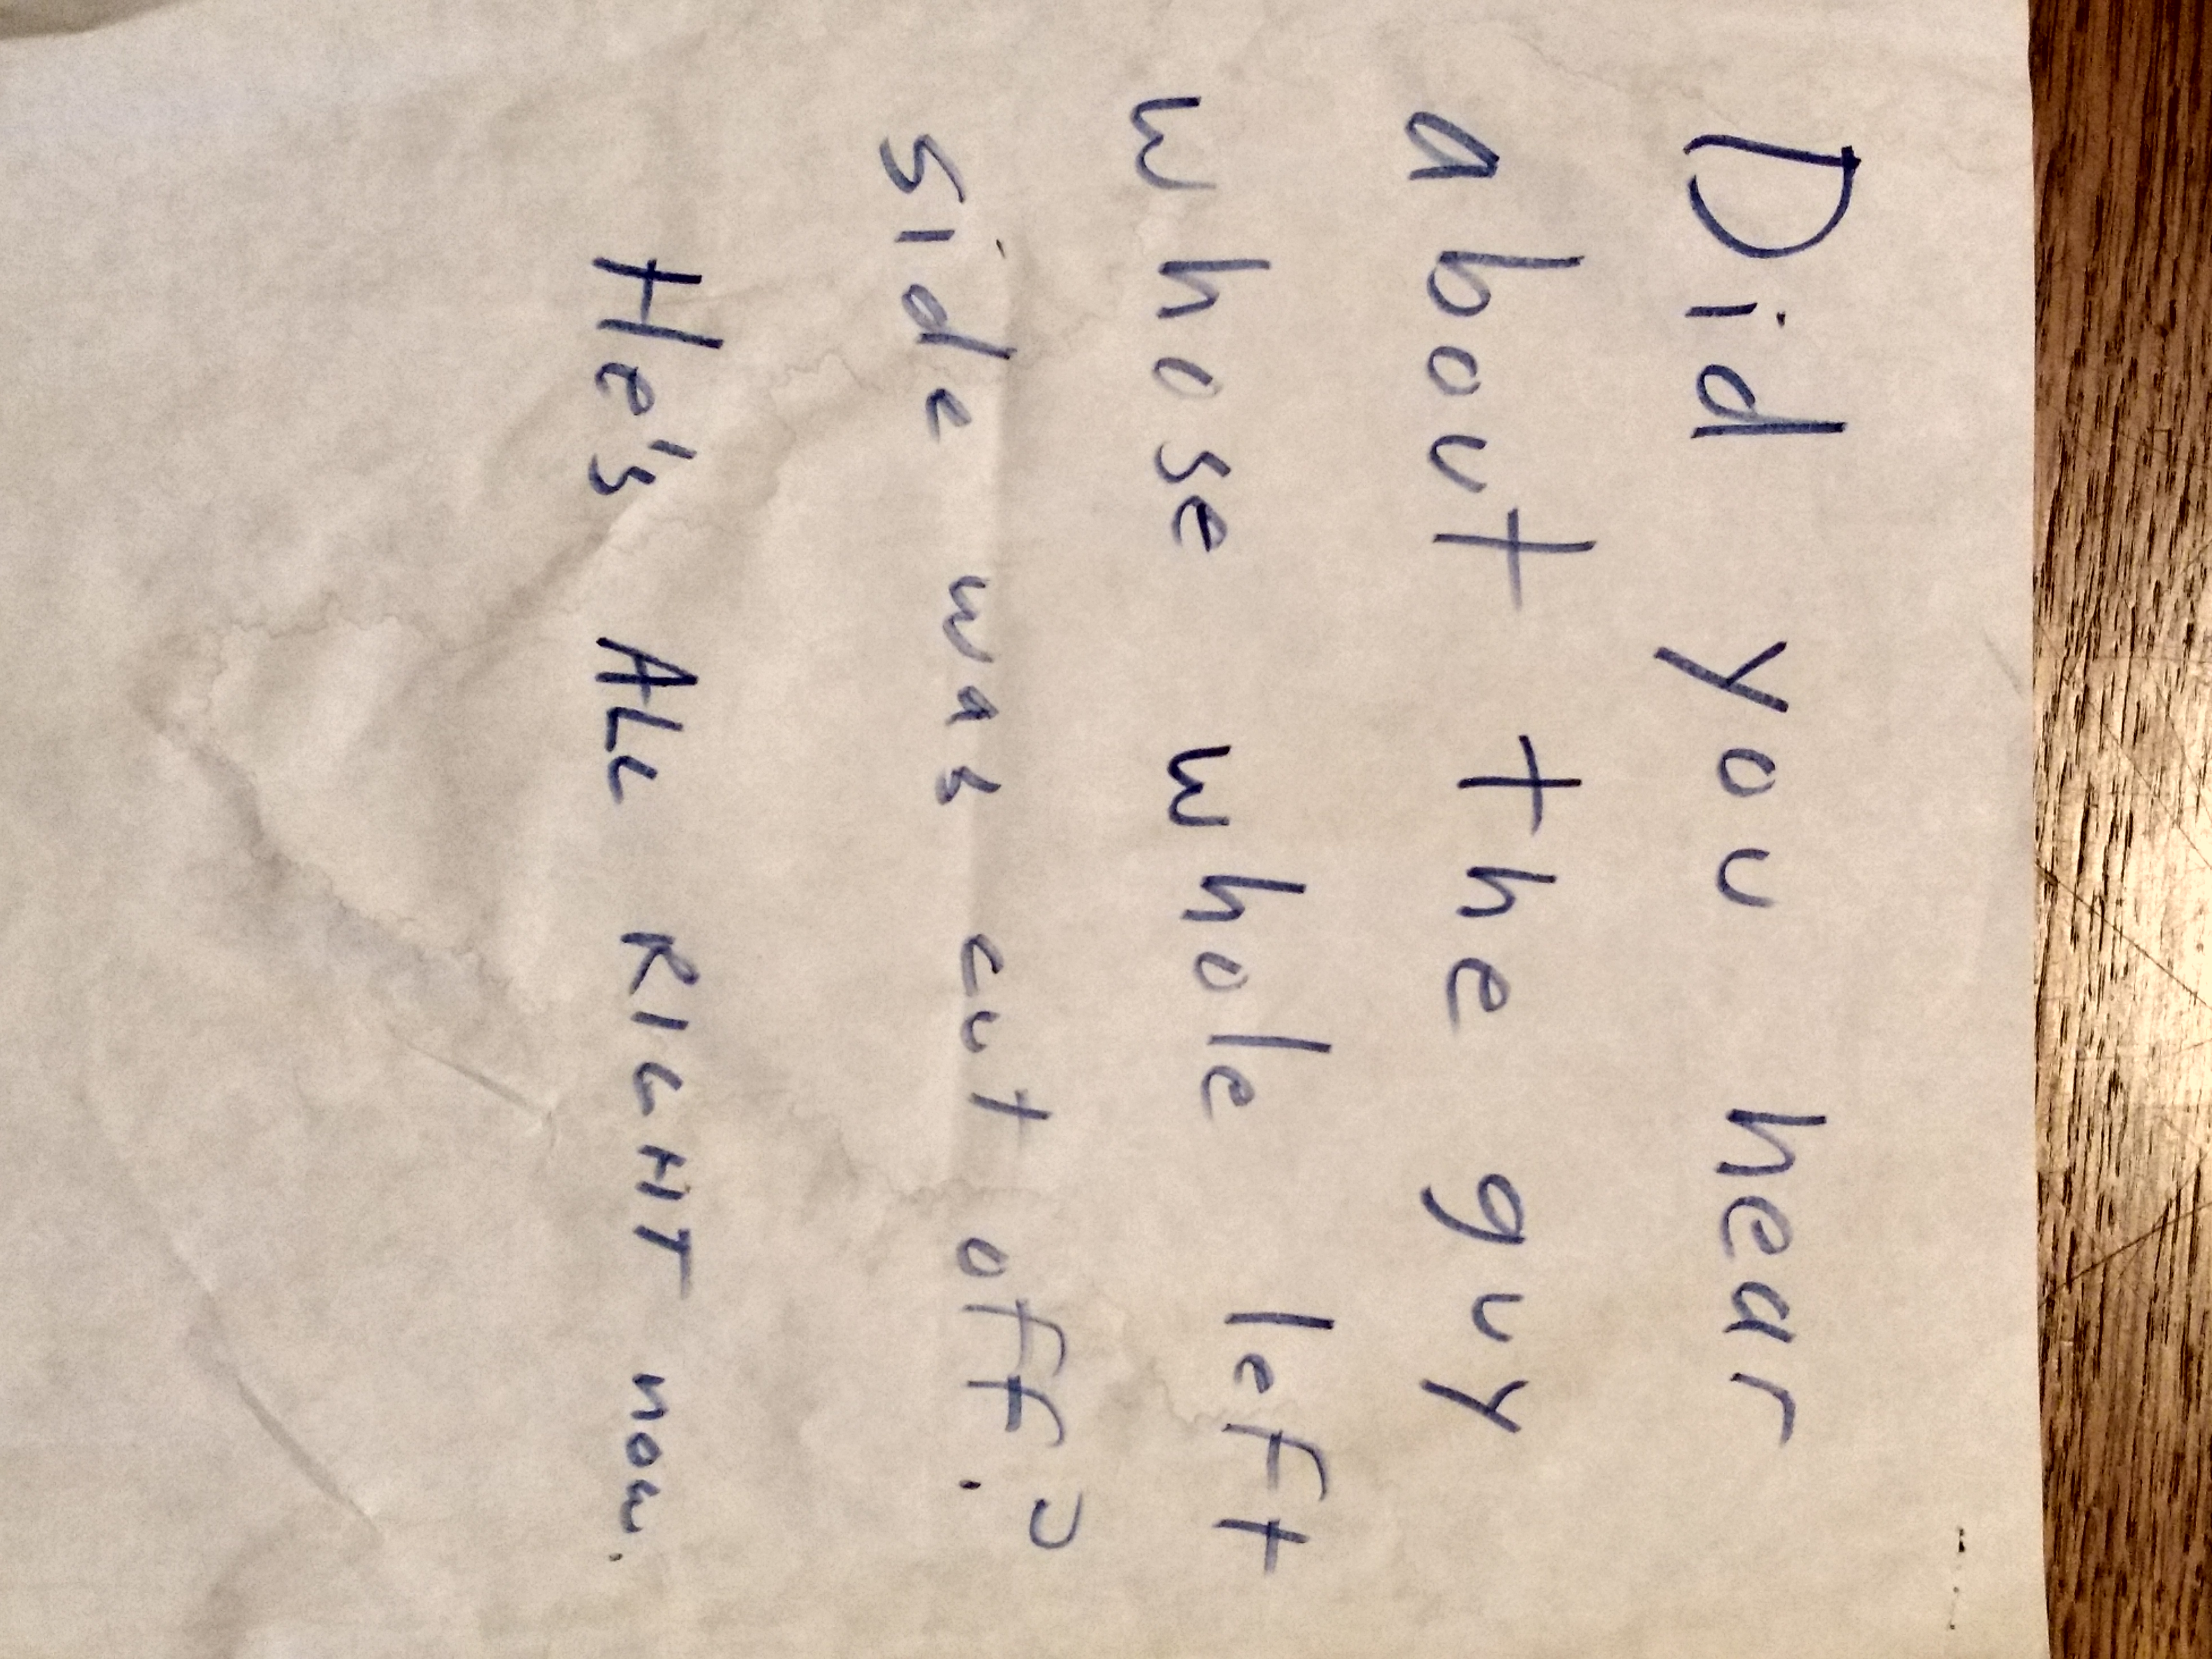 Did you hear
about the guy
whose whole left
side was cut off?
He's ALL RIGHT now.